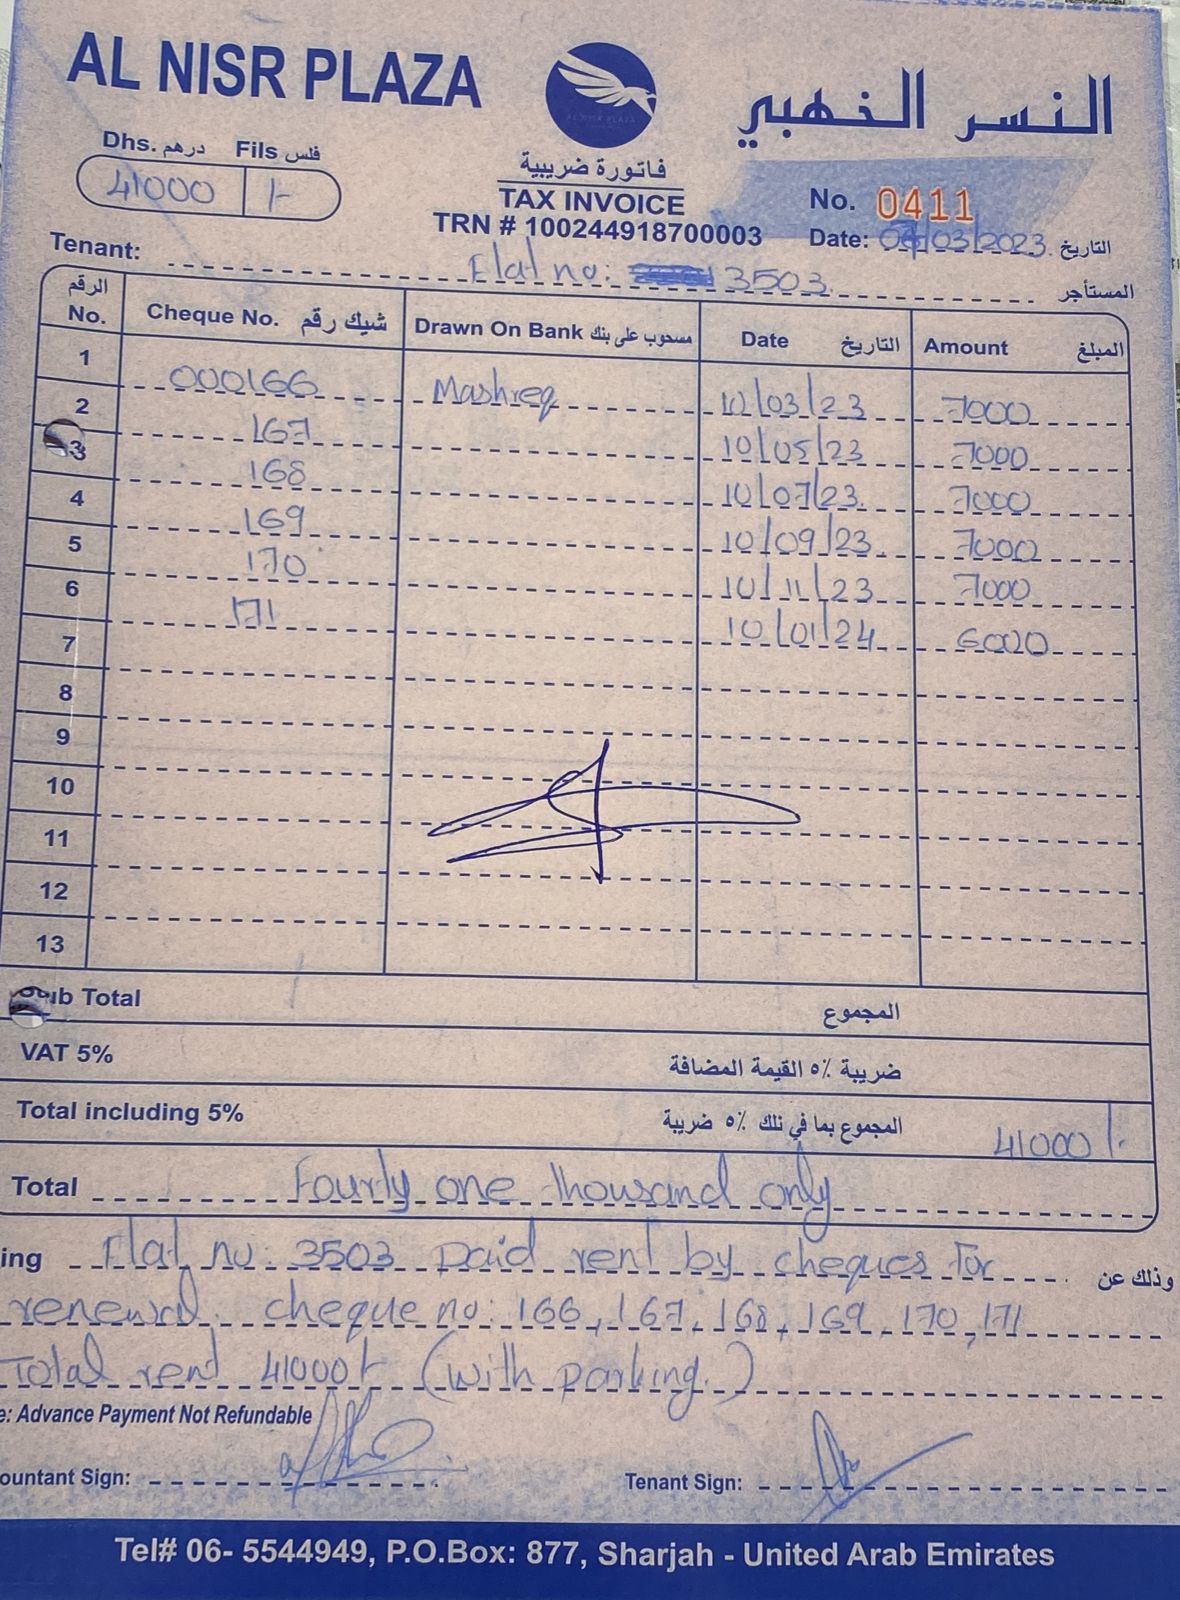 AL NISR PLAZA
النسر الذهبي
Dhs. درهم Fils فلس
41000 /-
فاتورة ضريبية
TAX INVOICE
TRN # 100244918700003
No. 0411
Date: /03/2023 التاريخ
Tenant: Flat no: 3503 المستأجر
الرقم No. Cheque No. شيك رقم Drawn On Bank مسحوب على بنك Date التاريخ Amount المبلغ
1 000166 Mashreq 10/03/23 7000
2 167 10/05/23 7000
3 168 10/07/23 7000
4 169 10/09/23 7000
5 170 10/11/23 7000
6 171 10/01/24 6000
7
8
9
10
11
12
13
Sub Total المجموع
VAT 5% ضريبة ٥٪ القيمة المضافة
Total including 5% المجموع بما في تلك ٥٪ ضريبة 41000/-
Total Fourty one thousand only
ing Flat no: 3503 paid rent by cheques for وذلك عن
renewal. cheque no: 166, 167, 168, 169, 170, 171
Total rent 41000/- (with parking.)
e: Advance Payment Not Refundable
ountant Sign: Tenant Sign:
Tel# 06- 5544949, P.O.Box: 877, Sharjah - United Arab Emirates